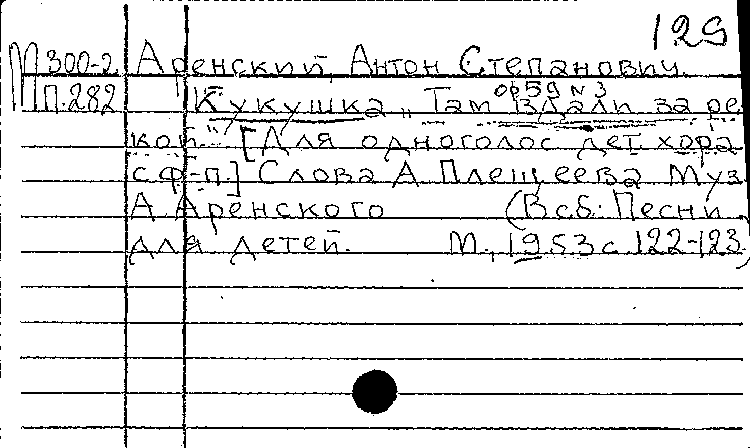 129
М 300-2 Аренский, Антон Степанович.
П.282 Кукушка „Там вдали за ре
ор 59 N 3
кой." [Для одноголос дет хора
с ф-п.] Слова А Плещеева Муз
А Аренского (В сб: Песни
для детей. М., 1953 с 122-123)